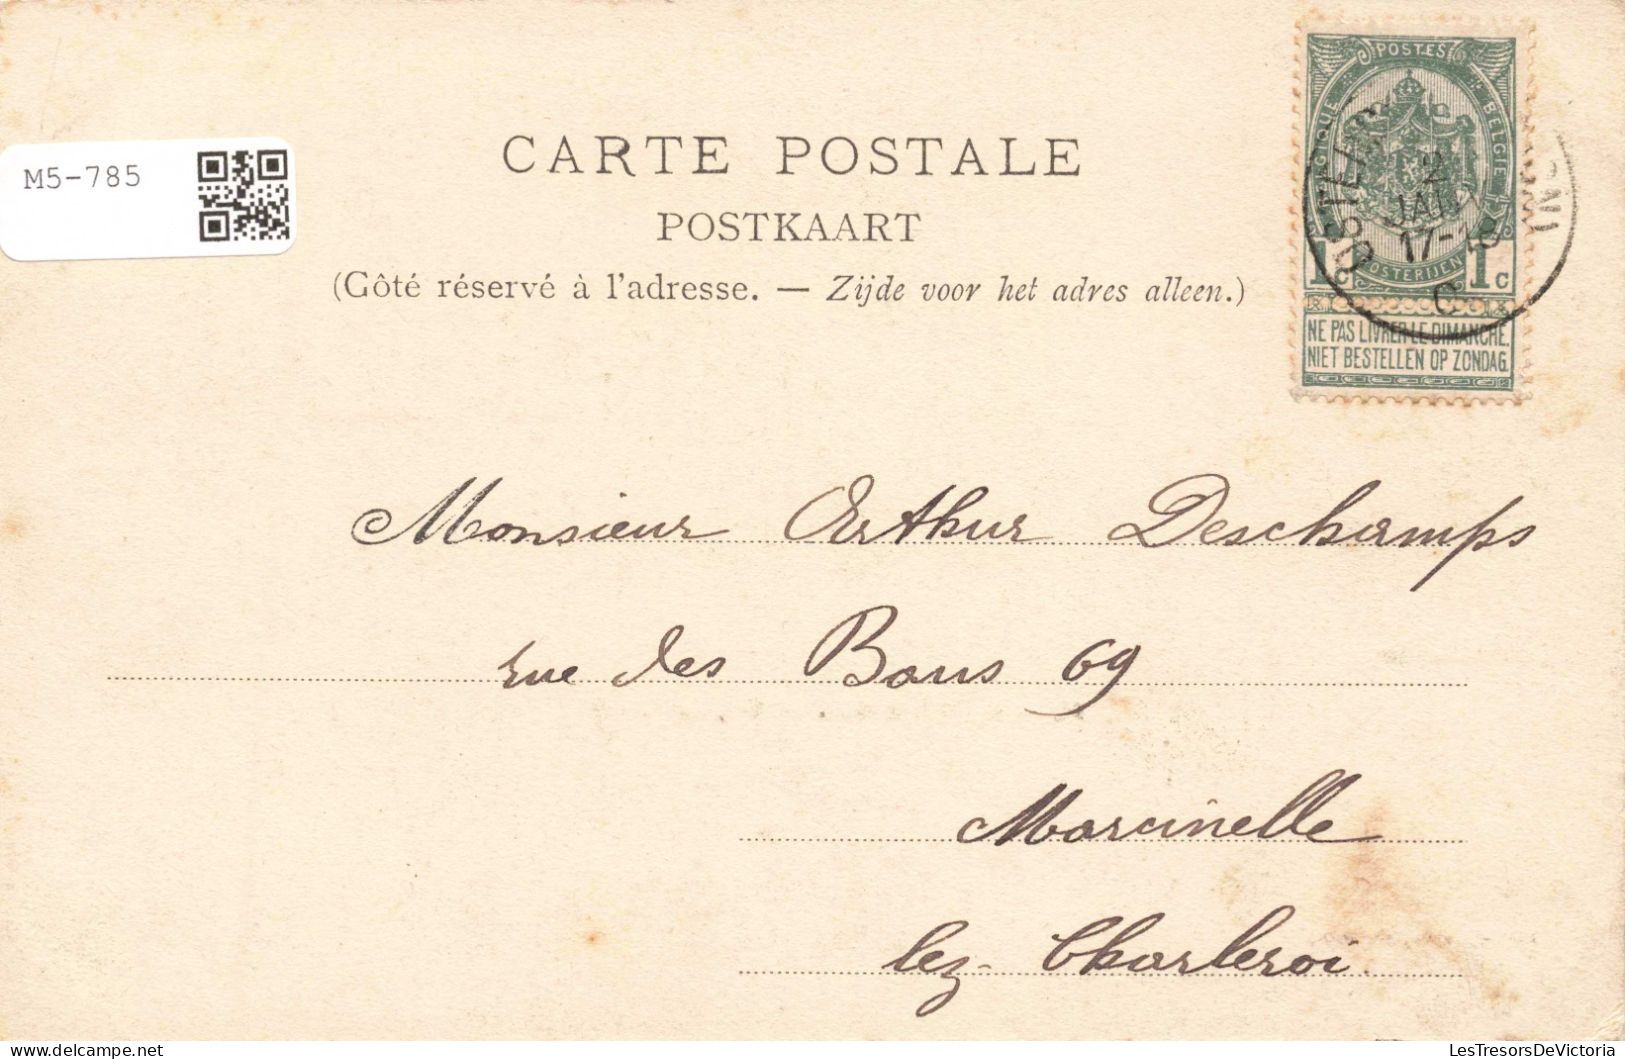 M5-785
CARTE POSTALE
POSTKAART
(Côté réservé à l'adresse. — Zijde voor het adres alleen.)
POSTES
BELGIQUE
BELGIE
POSTERIJEN
1 1c
NE PAS LIVRER LE DIMANCHE.
NIET BESTELLEN OP ZONDAG.
2
JANV
17-18
C
Monsieur Arthur Deschamps
rue des Bans 69
Marcinelle
lez-Charleroi.
LesTresorsDeVictoria
www.delcampe.net